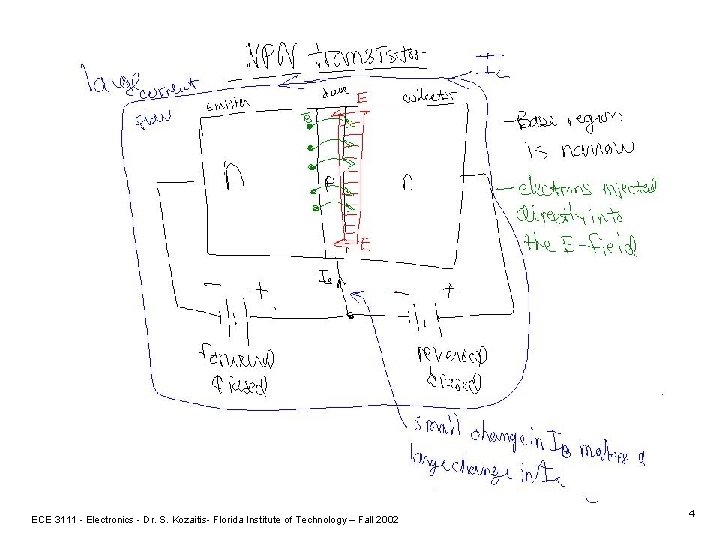 NPN transistor
large current
flow
Ic
emitter
base
collector
E
n
p
n
E
- Base region
is narrow
- electrons injected
directly into
the E-field
IB
- +
- +
forward
biased
reversed
biased
small change in IB makes a
large change in Ic
ECE 3111 - Electronics - Dr. S. Kozaitis- Florida Institute of Technology – Fall 2002
4